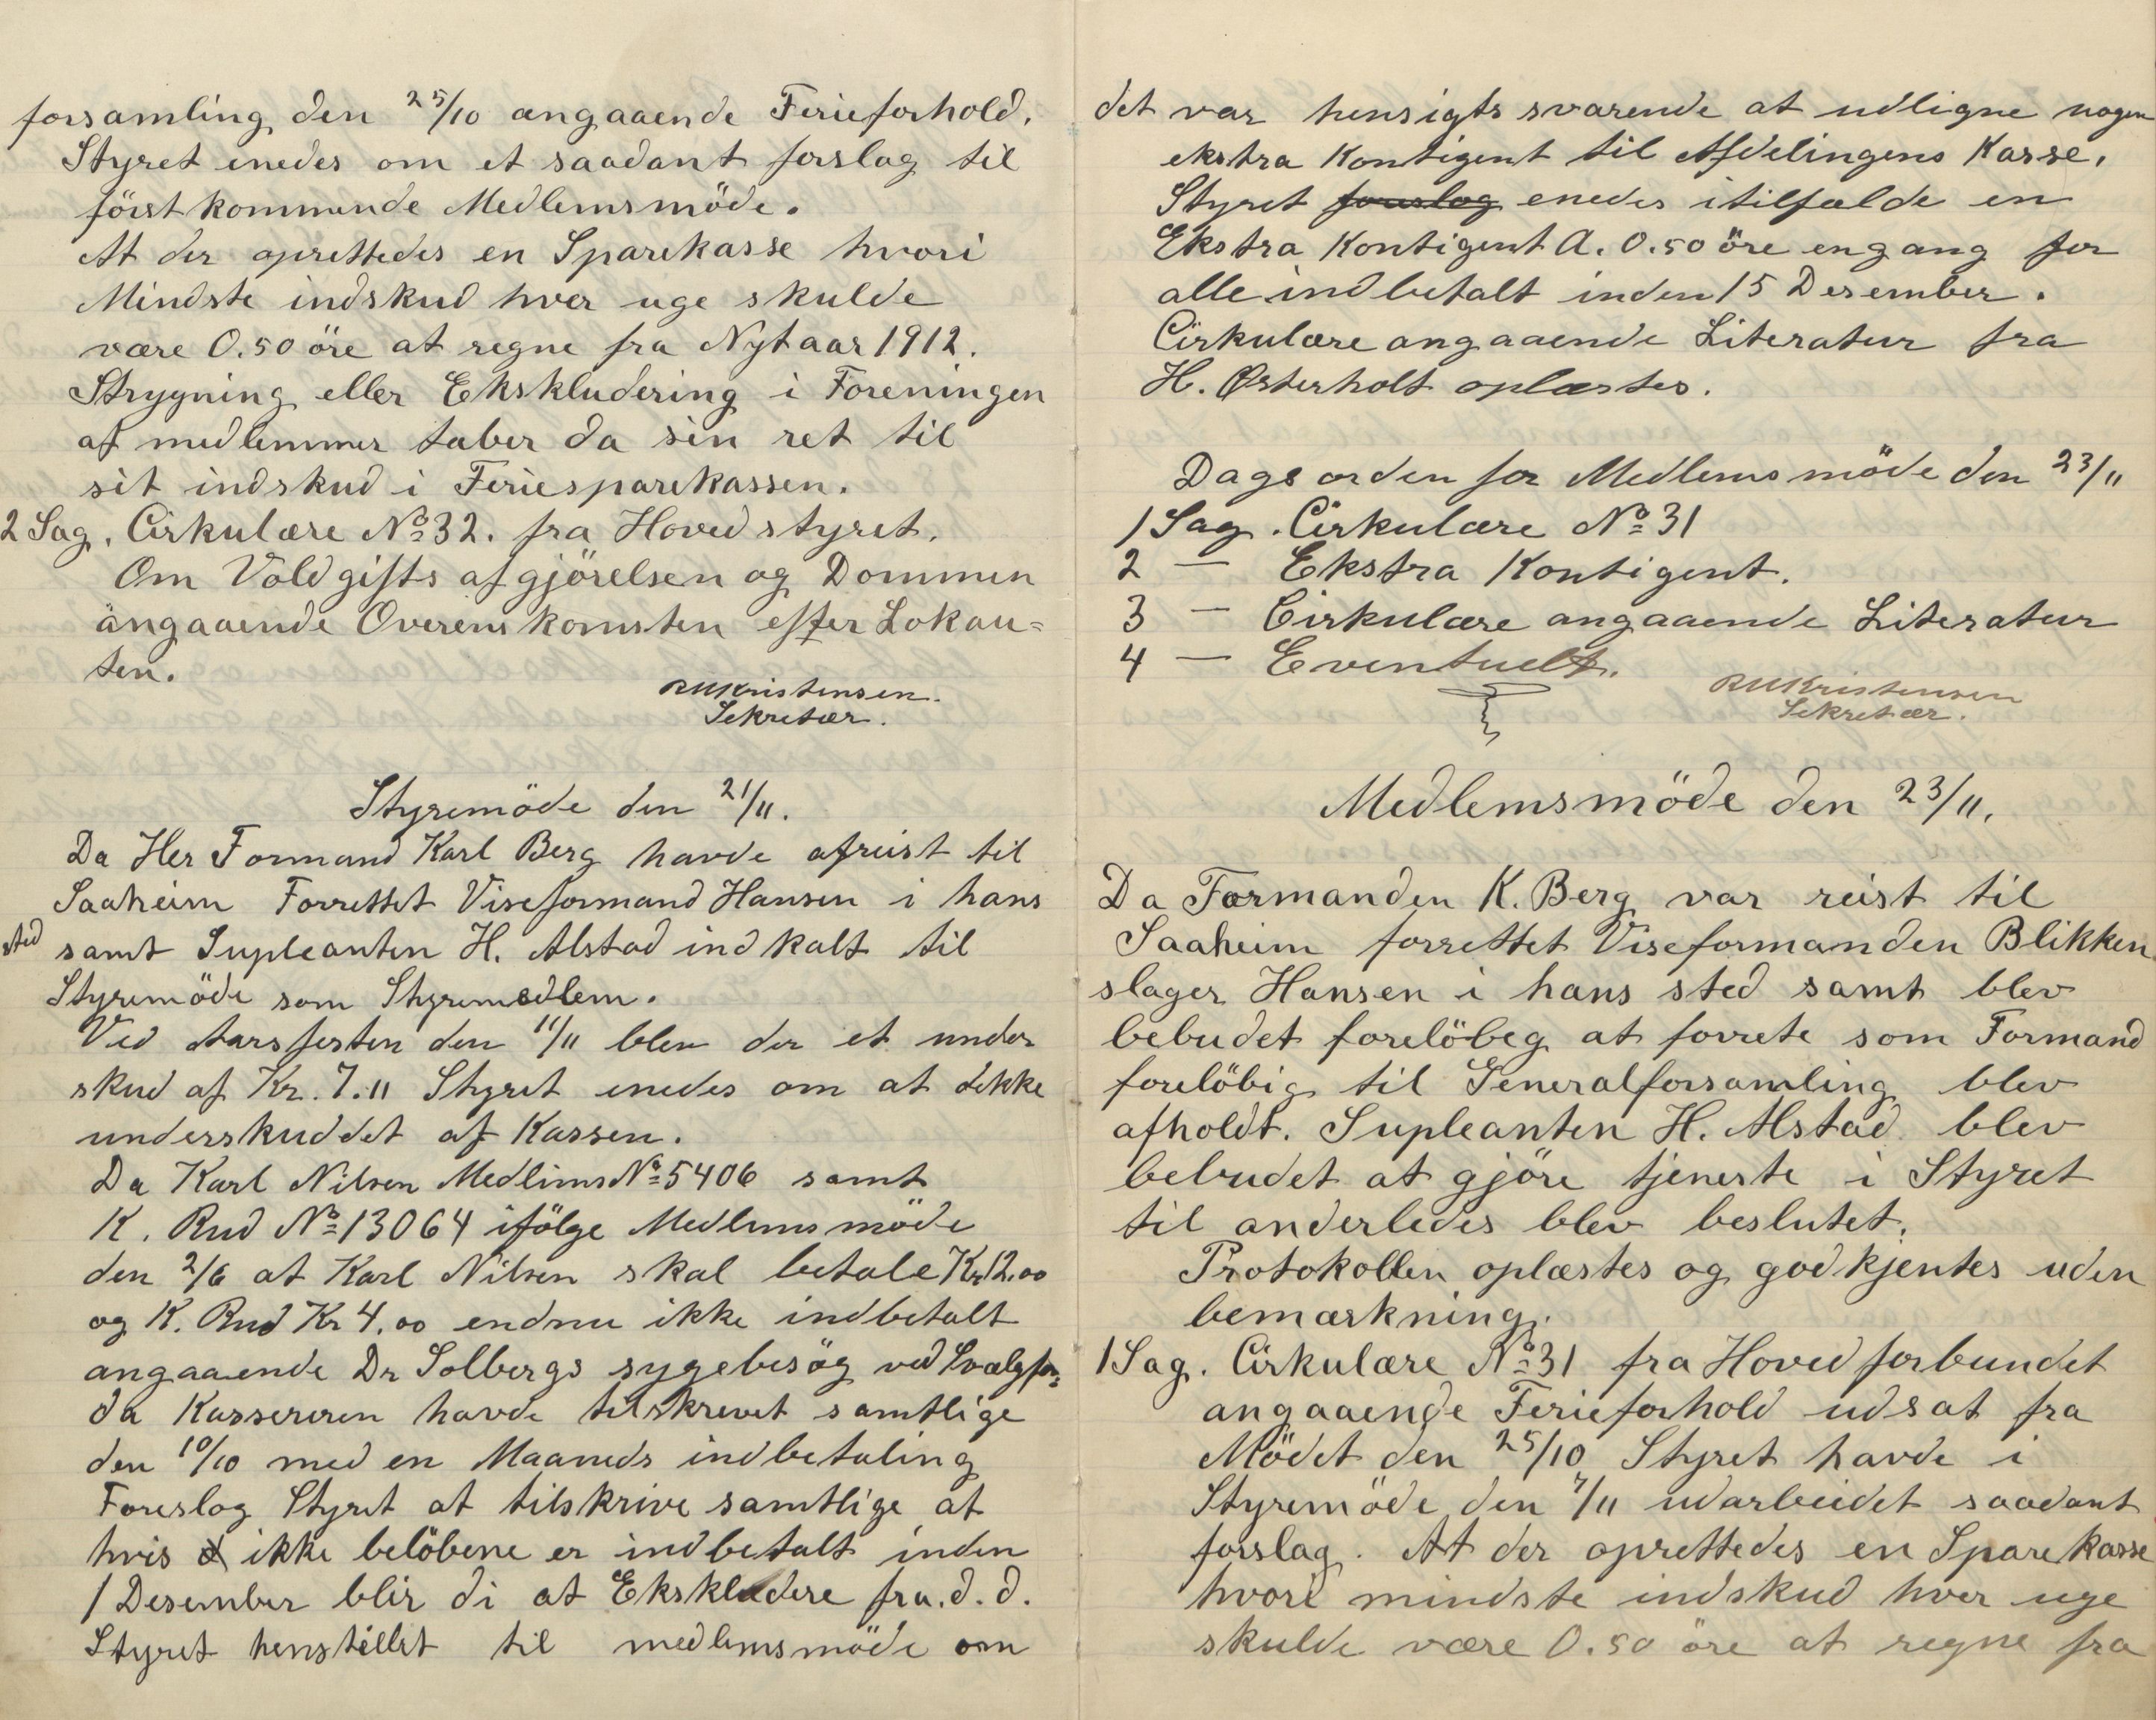 forsamling den 25/10 angaaende Ferieforhold.
Styret enedes om et saadant forslag til
först kommende Medlemsmöde.
At der oprettedes en Sparekasse hvori
Mindste indskud hver uge skulde
være 0.50 öre at regne fra Nytaar 1912.
Strygning eller Ekskludering i Foreningen
af medlemmer taber da sin ret til
sit indskud i Feriesparekassen.
2 Sag. Cirkulære No 32. fra Hovedstyret.
Om Voldgifts afgjörelsen og Dommen
angaaende Overenskomsten efter Lokau=
ten.
RMKristensen.
Sekretær.
Styremöde den 21/11.
Da Her Formand Karl Berg havde afreist til
Saaheim Forrettet Viseformand Hansen i hans
sted samt Supleanten H. Alstad indkalt til
Styremöde som Styremedlem.
Ved Aarsfesten den 11/11 blev der et under
skud af Kr. 7.11 Styret enedes om at dekke
underskuddet af Kassen.
Da Karl Nilsen Medlims No 5406 samt
K. Rud No 13064 ifölge Medlemsmöde
den 2/6 at Karl Nilsen skal betale Kr 12.00
og K. Rud Kr 4.00 endnu ikke indbetalt
angaaende Dr Solbergs sygebesög ved
da Kassereren havde tilskrevet samtlige
den 10/10 med en Maaneds indbetaling
Foreslog Styret at tilskrive samtlige at
hvis ikke belöbene er indbetalt inden
1 Desember blir di at Ekskludere fra. d. d.
Styret henstillet til medlemsmöde om
det var hensigtssvarende at udligne nogen
ekstra Kontigent til Afdelingens Kasse.
Styret foreslog enedes itilfælde en
Ekstra Kontigent A. 0.50 öre engang for
alle indbetalt inden 15 Desember.
Cirkulære angaaende Literatur fra
H. Østerholt oplæstes.
Dagsorden for Medlemsmöde den 23/11
1 Sag. Cirkulære No 31
2 — Ekstra Kontigent.
3 — Cirkulære angaaende Literatur
4 — Eventuelt.
RMKristensen
Sekretær.
Medlemsmöde den 23/11.
Da Formanden K. Berg var reist til
Saaheim forrettet Viseformanden Blikken
slager Hansen i hans sted samt blev
bebudet forelöbeg at forrete som Formand
forelöbig til Generalforsamling blev
afholdt. Supleanten H. Alstad blev
bebudet at gjöre tjeneste i Styret
til anderledes blev beslutet.
Protokollen oplæstes og godkjentes uden
bemærkning.
1 Sag. Cirkulære No 31 fra Hovedforbundet
angaaende Ferieforhold udsat fra
Mödet den 25/10 Styret havde i
Styremöde den 7/11 udarbeidet saadant
forslag. At der oprettedes en Sparekasse
hvori mindste indskud hver uge
skulde være 0.50 öre at regne fra